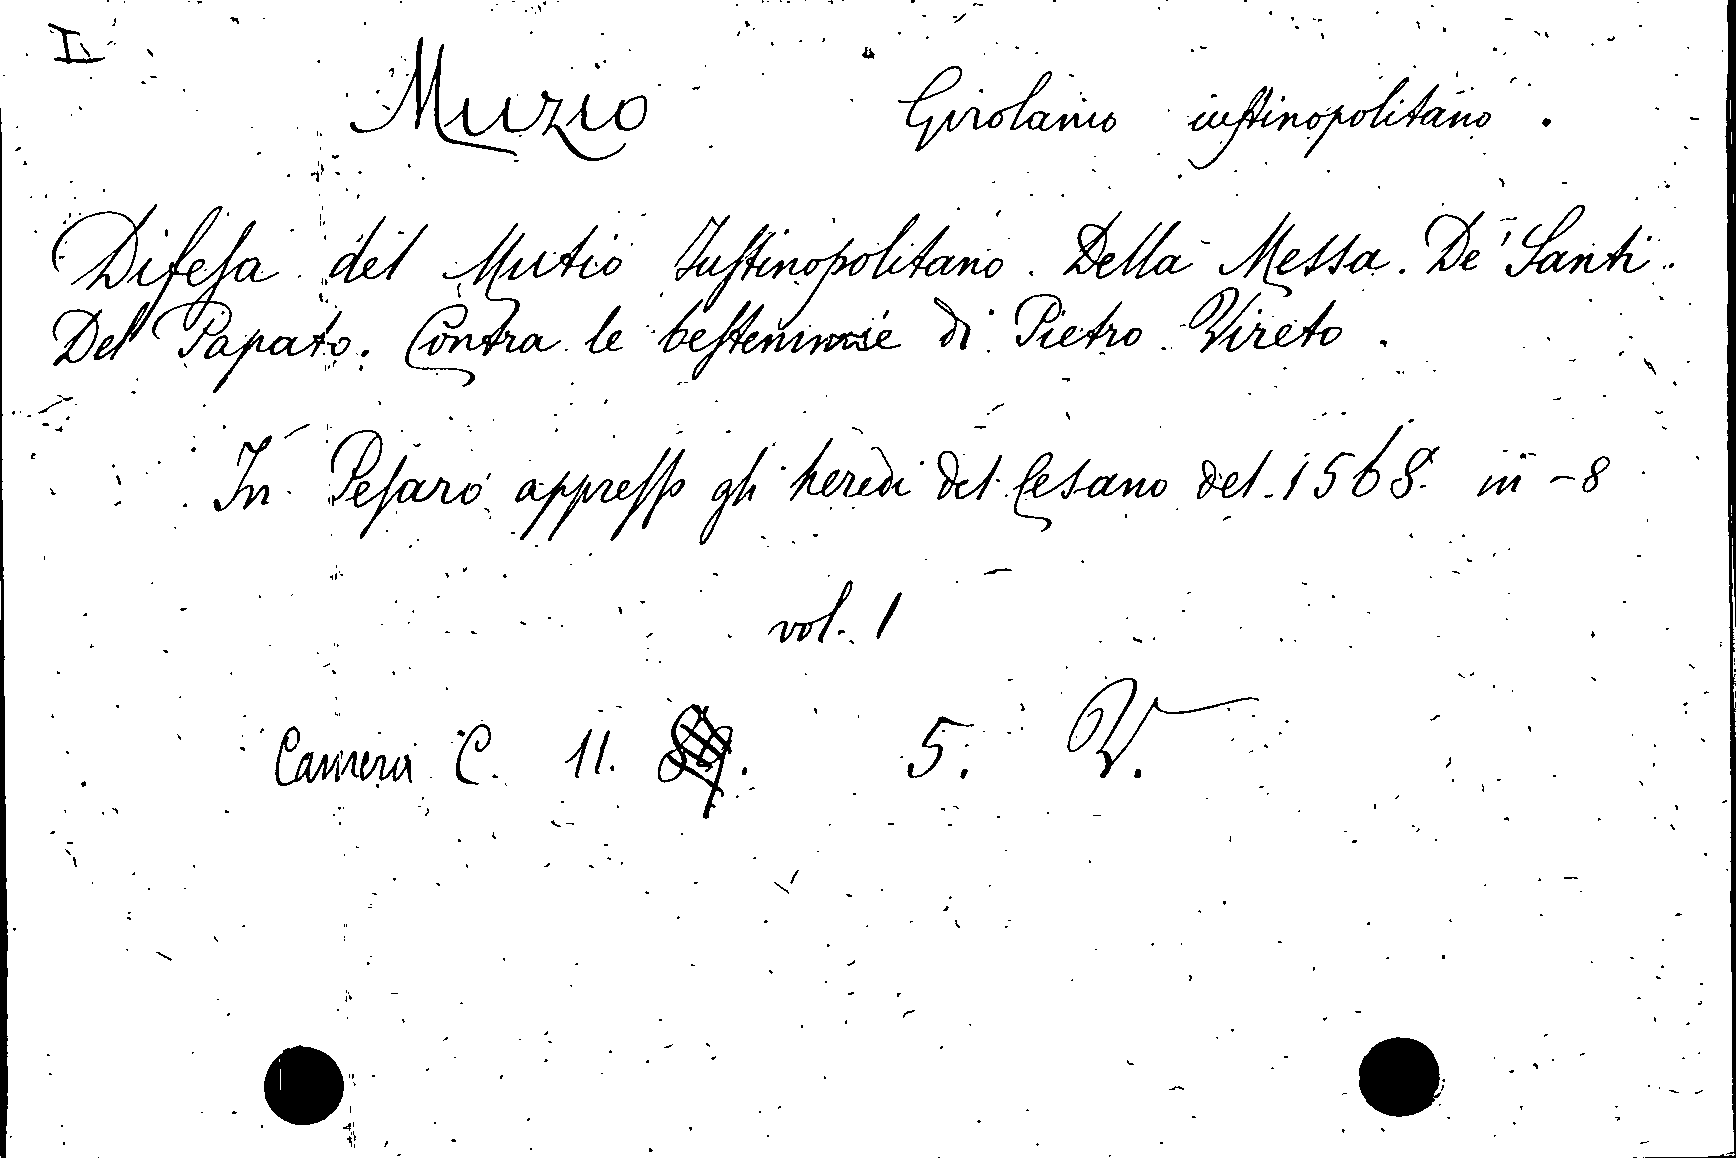 I
Muzio Girolamo iustinopolitano.
Difesa del Mutio Iustinopolitano. Della Messa. De' Santi.
Del Papato. Contra le bestemmie di Pietro Vireto.
In Pesaro appresso gli heredi del Cesano del 1568. in-8
vol. 1
Camera C. 11. 5. V.